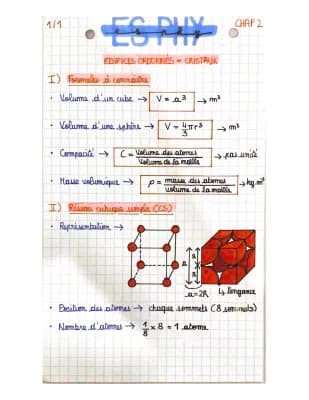 1/1
ES PHY
CHAP 2
es phy
EDIFICES ORDONNÉS = CRISTAUX
I) Formules à connaitre
· Volume d'un cube → V = a³ → m³
· Volume d'une sphère → V = 4/3 πr³ → m³
· Compacité → C = Volume des atomes / Volume de la maille → pas unité
· Masse volumique → ρ = masse des atomes / volume de la maille → kg.m³
II) Réseau cubique simple (CS)
· Représentation →
a
R
R
a = 2R
↳ Tangence
· Position des atomes → chaque sommets (8 sommets)
· Nombre d'atomes → 1/8 × 8 = 1 atome